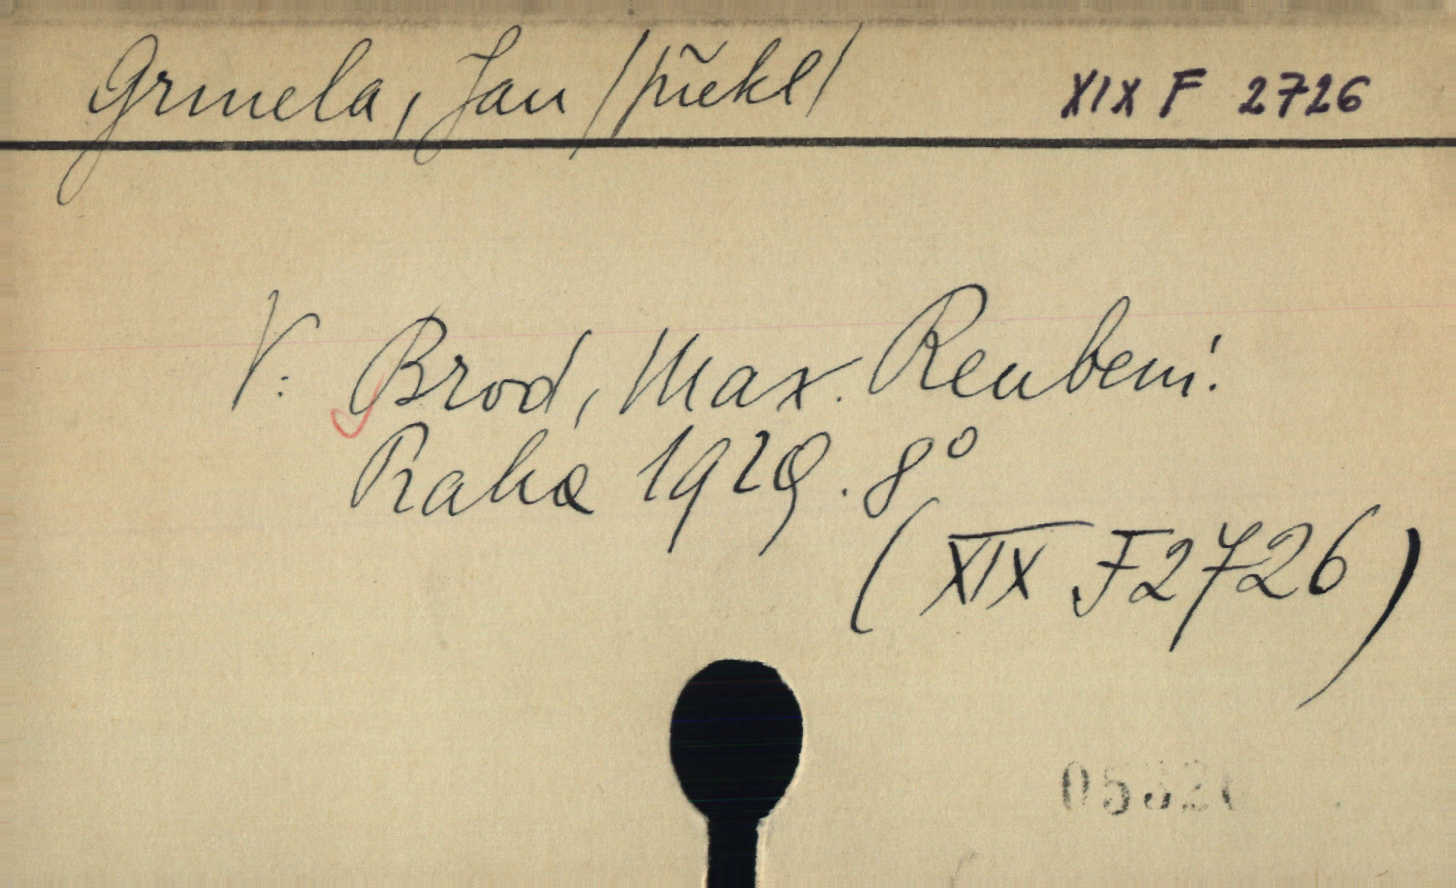 Grmela, Jan /překl/ XIX F 2726
V: Brod, Max. Reubeni.
Praha 1929. 8°
(XIX F 2726)